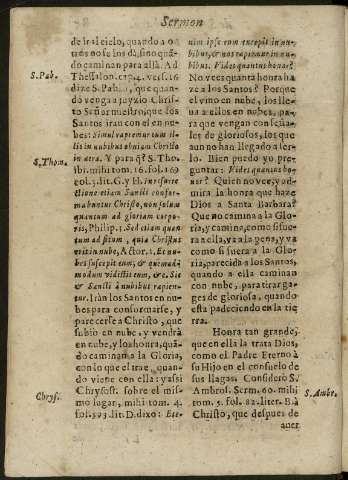 Sermon
de ir al cielo, quando a o
tros no se los dà, sino quãdo
caminan para allà. Ad
S. Pab.
Thessalon. cap. 4. vers. 16
dize S. Pablo, que quando
vengan a juyzio Christo
Señor nuestro, que los
Santos iran con el en nubes:
Simul rapiemur cum illis
in nubibus obuiam Christo
S. Thom.
in aera. Y para q̃? S. Tho.
ibi. mihi tom. 16. fol. 169
col. 3. lit. G. y H. in resurrectione
etiam Sancti conformabuntur
Christo, non solum
quantum ad gloriam corporis,
Philip. 3. Sed etiam quantum
ad situm, quia Christus
erit in nube, Actor. 1. Et nubes
suscepit eum, & quemadmodum
vidistis eum, &c. Sic
& Sancti à nubibus rapientur.
Iràn los Santos en nubes
para conformarse, y
parecerse a Christo, que
subio en nube, y vendrà
en nube, y los honra, quãdo
caminan a la Gloria,
con lo que el trae quando
viene con ella: y assi
Chrys.
Chrysost. sobre el mismo
lugar, mihi tom. 4.
fol. 593. lit. D. dixo: Etenim
ipse eum excepit in nubibus,
& nos rapiemur in nubibus.
Vides quantus honor?
No ves quanta honra haze
a los Santos? Porque
el vino en nube, los lleua
a ellos en nubes, para
que vengan con señales
de gloriosos, los que
aun no han llegado a serlo.
Bien puedo yo preguntar:
Vides quantus honor?
Quien no ve, y admira
la honra que haze
Dios a Santa Barbara?
Que no camina a la Gloria,
y camina, como si fuera
a ella, va a la pena, y va
como si fuera a la Gloria,
parecido a los Santos,
quando a ella caminan
con nube, para tirar gages
de gloriosa, quando
esta padeciendo en la tierra.
Honra tan grande,
que en ella la trata Dios,
como el Padre Eterno à
su Hijo en el consuelo de
sus llagas. Considerò S.
S. Ambr.
Ambros. Serm. 60. mihi
tom. 5. fol. 82. liter. B. à
Christo, que despues de
auer